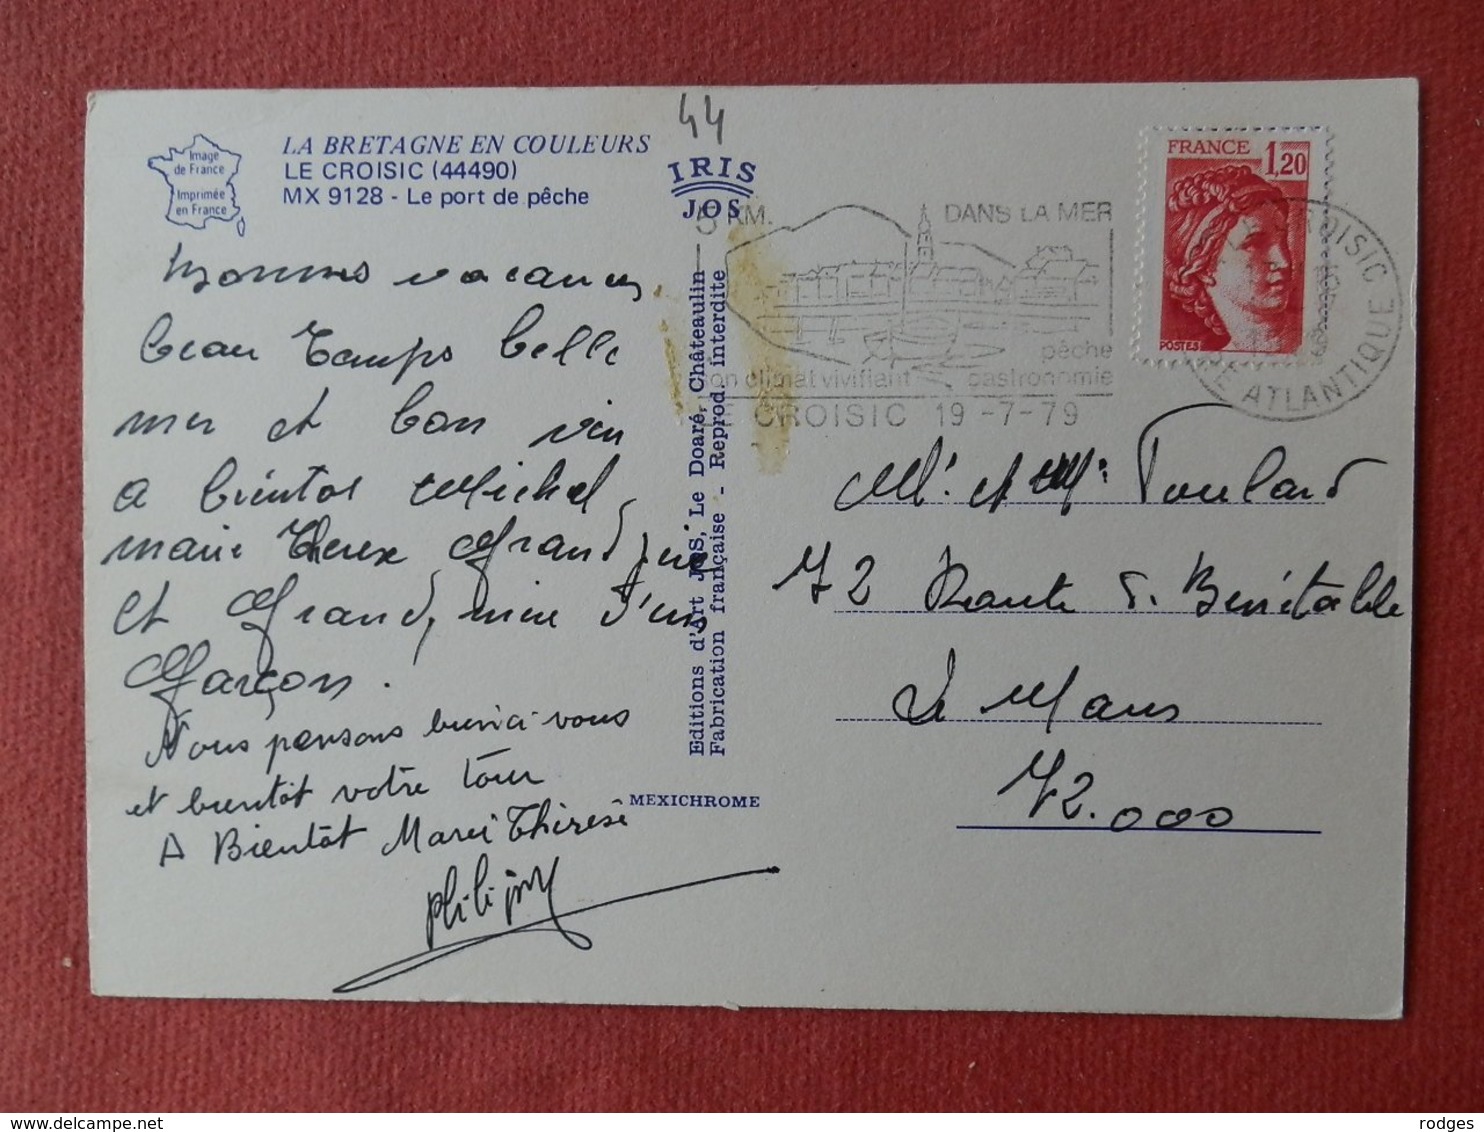 44
Image
de France
Imprimée
en France
LA BRETAGNE EN COULEURS
LE CROISIC (44490)
MX 9128 - Le port de pêche
IRIS
JOS
5 KM. DANS LA MER
pêche
son climat vivifiant gastronomie
LE CROISIC 19-7-79
FRANCE 1,20
POSTES
CROISIC
ATLANTIQUE
bonnes vacances
beau Temps belle
mer et bon vin
a bientot Michel
marie Therese Grand pere
et Grand, mere d'un
Garçon.
Nous pensons bien à vous
et bientôt votre tour
A Bientôt Marie Thérèse
Philippe
Editions d'Art JOS, Le Doaré, Châteaulin
Fabrication française - Reprod. interdite
MEXICHROME
Mr et Me Poulard
72 Route de Bonnétable
Le Mans
72.000
rodges